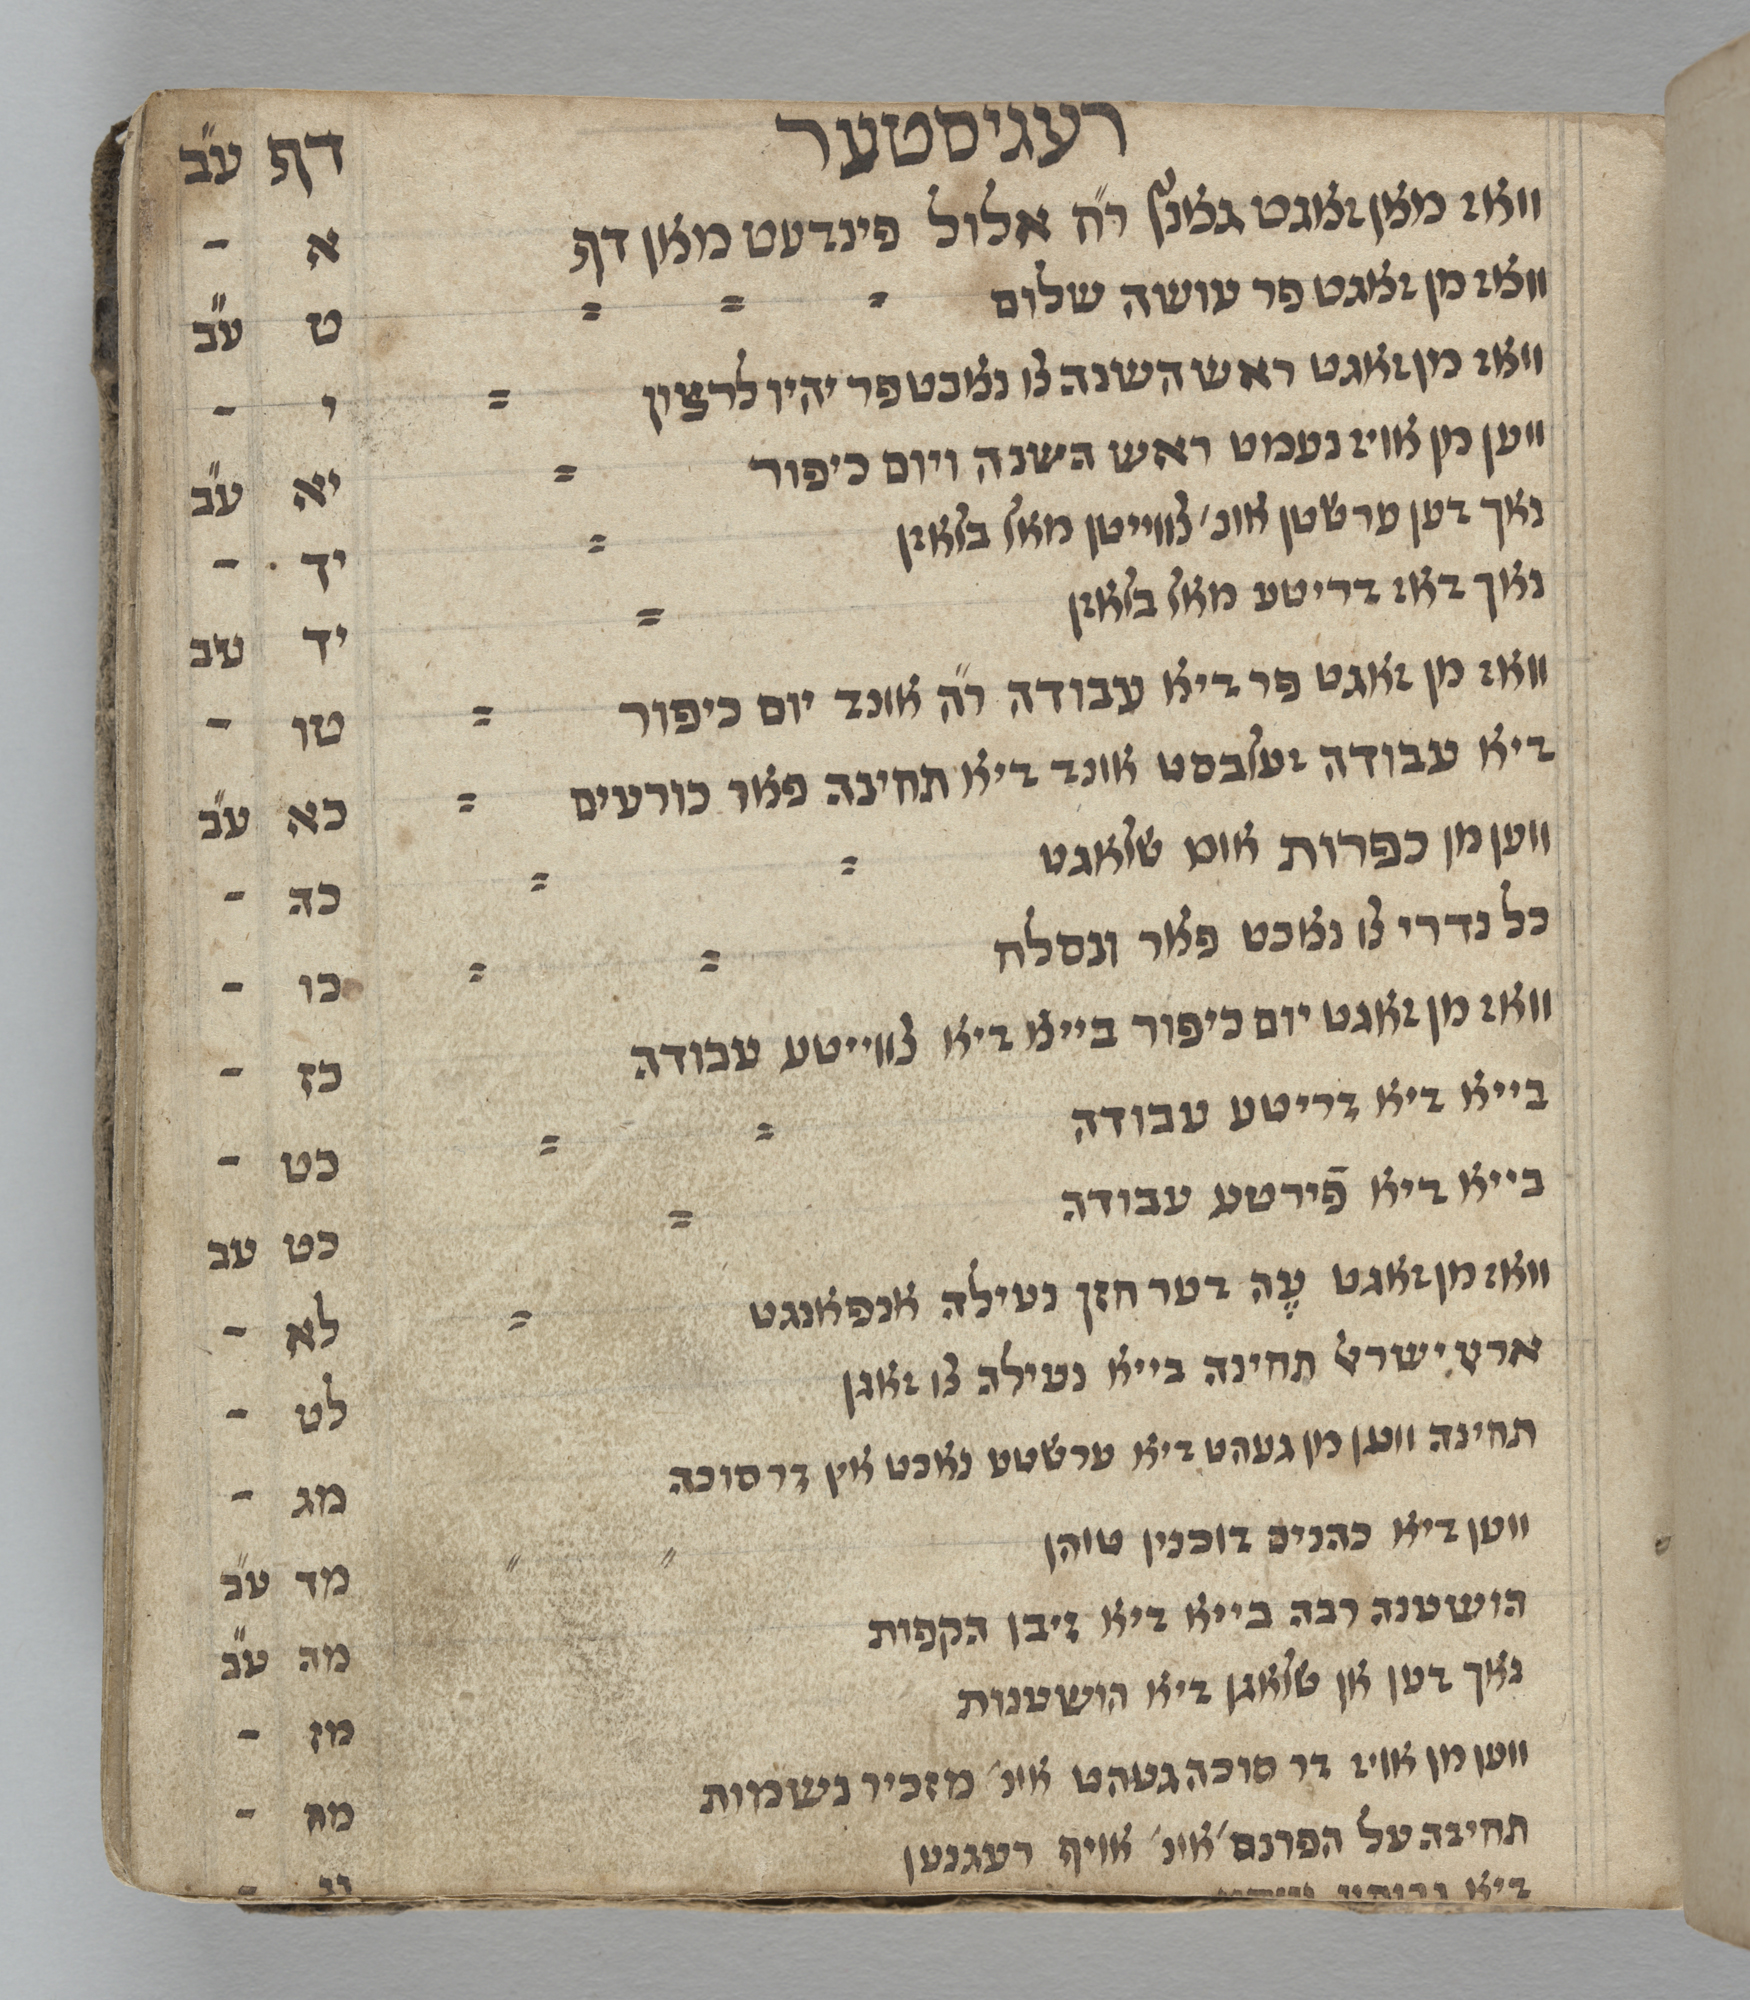 רעגיסטער דף ע״ב
וואז מאן זאגט גאנץ ר״ח אלול פינדעט מאן דף א -
וואז מן זאגט פר עושה שלום ט ע״ב
וואז מן זאגט ראש השנה צו נאכט פר יהיו לרצון י -
ווען מן אויז נעמט ראש השנה ויום כיפור יא ע״ב
נאך דען ערשטן אונ׳ צווייטן מאל בלאזן יד -
נאך דאז דריטע מאל בלאזן יד עב
וואז מן זאגט פר דיא עבודה ר״ה אונד יום כיפור טו -
דיא עבודה זעלבסט אונד דיא תחינה פאר כורעים כא ע״ב
ווען מן כפרות אום שלאגט כה -
כל נדרי צו נאכט פאר ונסלח כו -
וואז מן זאגט יום כיפור בייא דיא צווייטע עבודה כז -
בייא דיא דריטע עבודה כט -
בייא דיא פֿירטע עבודה כט עב
וואז מן זאגט עֶה דער חזן נעילה אנפאנגט לא -
ארץ ישראל תחינה בייא נעילה צו זאגן לט -
תחינה ווען מן געהט דיא ערשטע נאכט אין דר סוכה מג -
ווען דיא כהנים דוכנין טוהן מד ע״ב
הושענה רבה בייא דיא זיבן הקפות מה ע״ב
נאך דען אן שלאגן דיא הושענות מז -
ווען מן אויז דר סוכה געהט אונ׳ מזכיר נשמות מח -
תחינה על הפרנס׳ אונ׳ אויף רעגנען
דיא